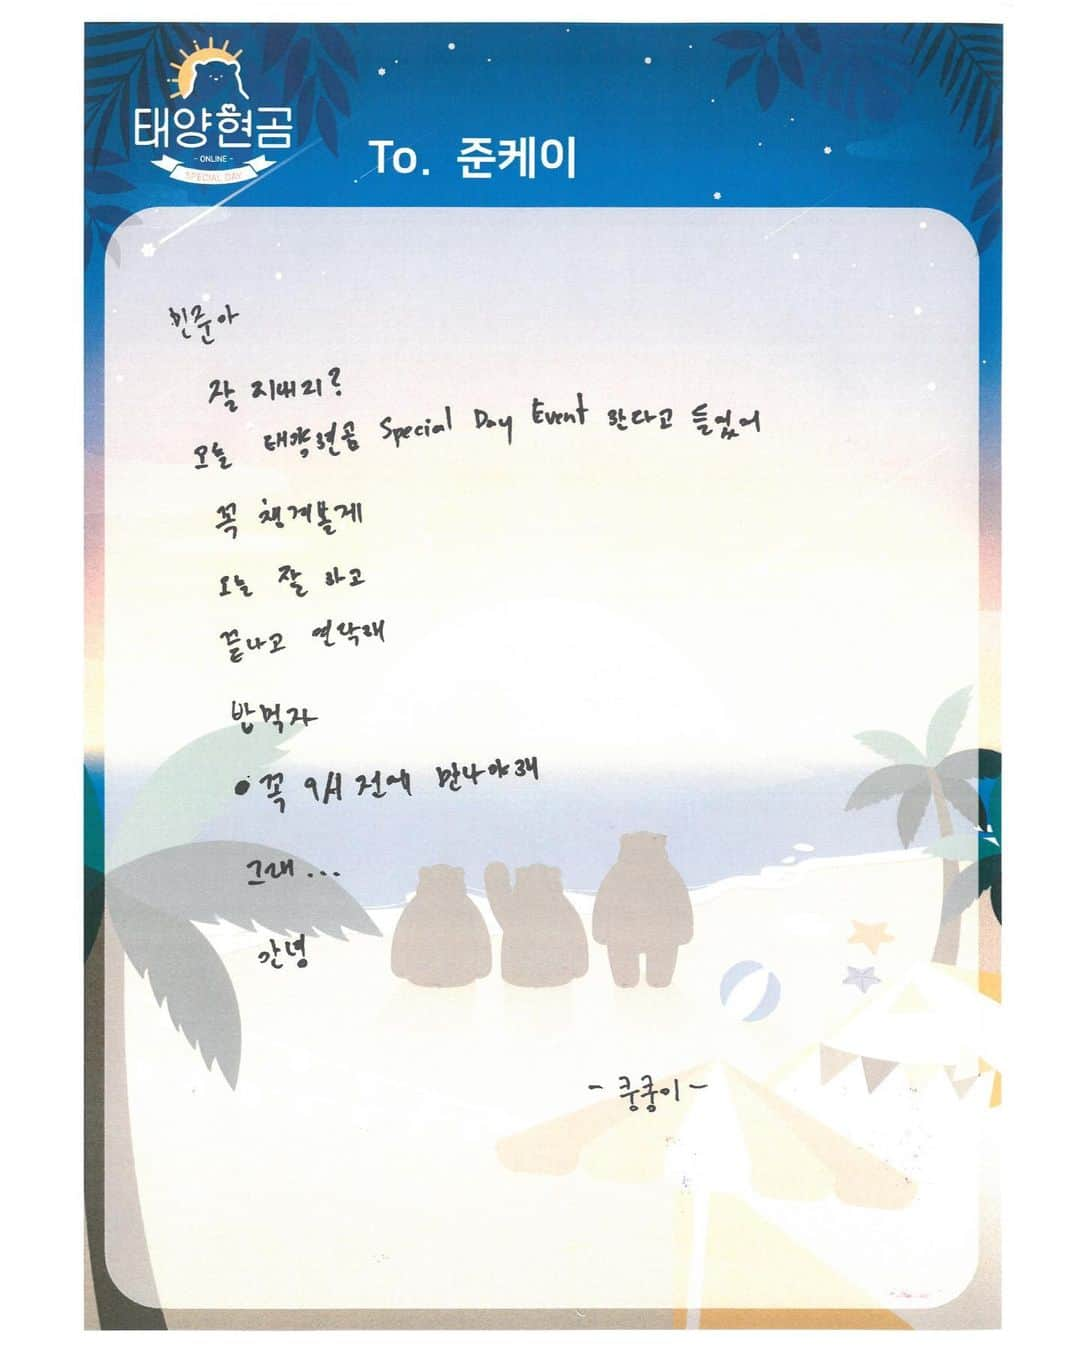 태양현곰
- ONLINE -
SPECIAL DAY
To. 준케이
민준아
잘 지내지?
오늘 태양현곰 Special Day Event 한다고 들었어
꼭 챙겨볼게
오늘 잘 하고
끝나고 연락해
밥먹자
꼭 9시 전에 만나야해
그래...
안녕
- 쿵쿵이 -